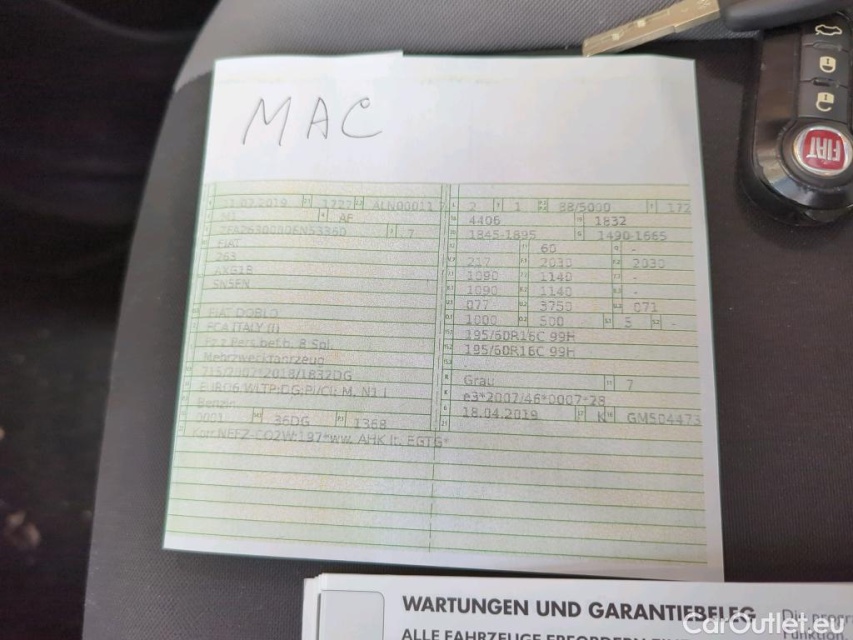 MAC
AF
FIAT
263
AXG1B
SN5EN
FIAT DOBLO
FCA ITALY (I)
Fz.z.Pers.bef.b. 8 Spl.
Mehrzweckfahrzeug
715/2007*2018/1832DG
EURO6 WLTP;DG;PI/CI; M, N1 I
Benzin
0001 36DG 1368
Korr.NEFZ-CO2W:197*ww. AHK lt. EGTG*
2 1 88/5000 172
4406 1832
1845-1895 1490-1665
60 -
217 2030 2030
1090 1140 -
1090 1140 -
077 3750 071
1000 500 5 -
195/60R16C 99H
195/60R16C 99H
-
Grau 7
e3*2007/46*0007*28
18.04.2019 K GM504473
FIAT
WARTUNGEN UND GARANTIEBELEG
ALLE FAHRZEUGE ERFORDERN
CarOutlet.eu